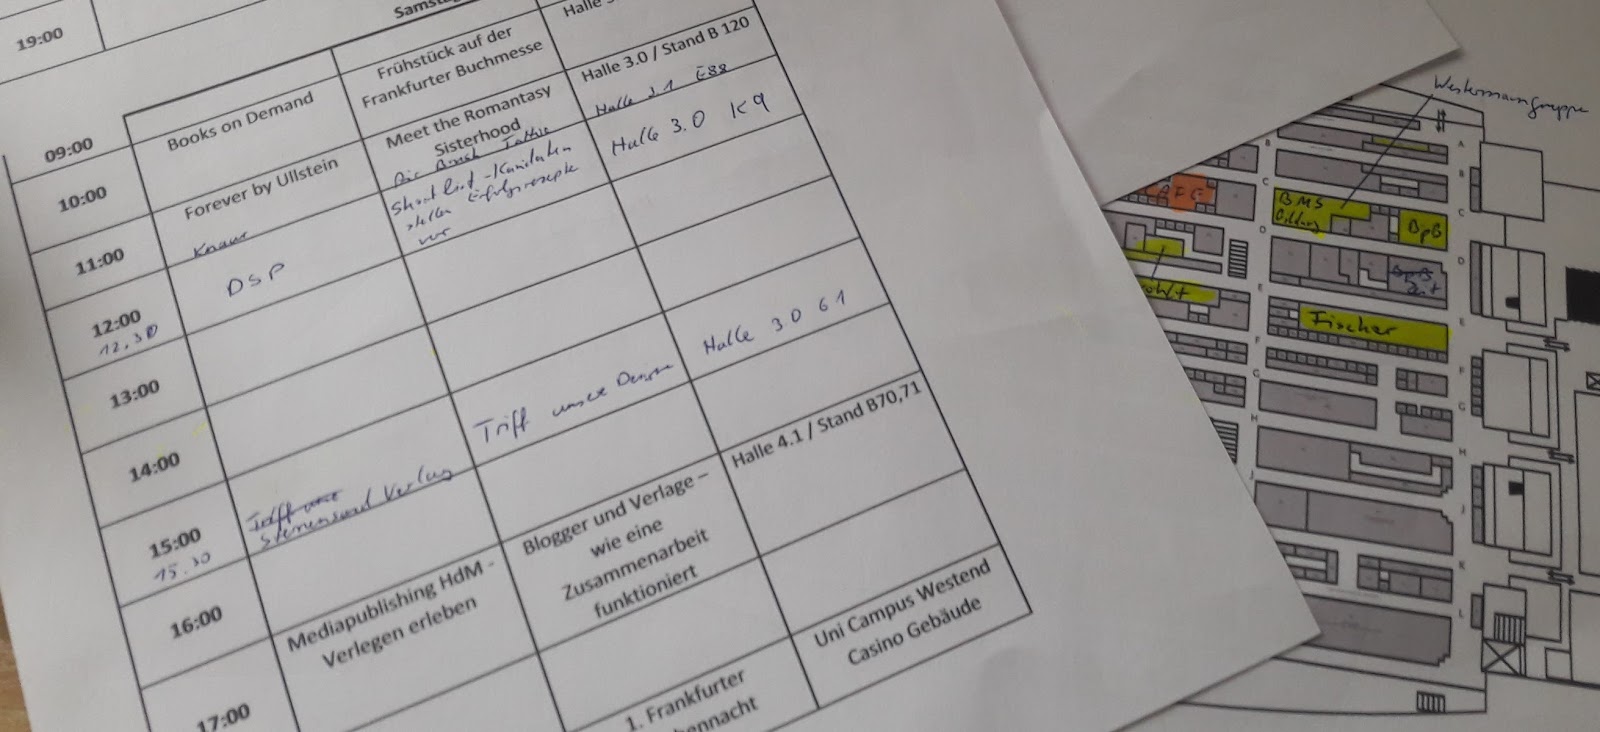 19:00
Halle
09:00
Books on Demand
Frühstück auf der
Frankfurter Buchmesse
10:00
Forever by Ullstein
Meet the Romantasy
Sisterhood
Halle 3.0 / Stand B 120
11:00
Knaur
Shortlist-Kandidaten
stellen Erfolgsrezepte
vor
Halle 3.1 E88
12:00
12.30
DSP
Halle 3.0 K9
13:00
14:00
15:00
15.30
Sternensand Verlag
Triff unsere
Halle 3.0 61
16:00
Mediapublishing HdM -
Verlegen erleben
Blogger und Verlage –
wie eine
Zusammenarbeit
funktioniert
Halle 4.1 / Stand B70,71
17:00
1. Frankfurter
Uni Campus Westend
Casino Gebäude
Westermanngruppe
BMS
Bildung
BpB
Zeit
Fischer
A
B
C
D
E
F
G
H
J
K
L